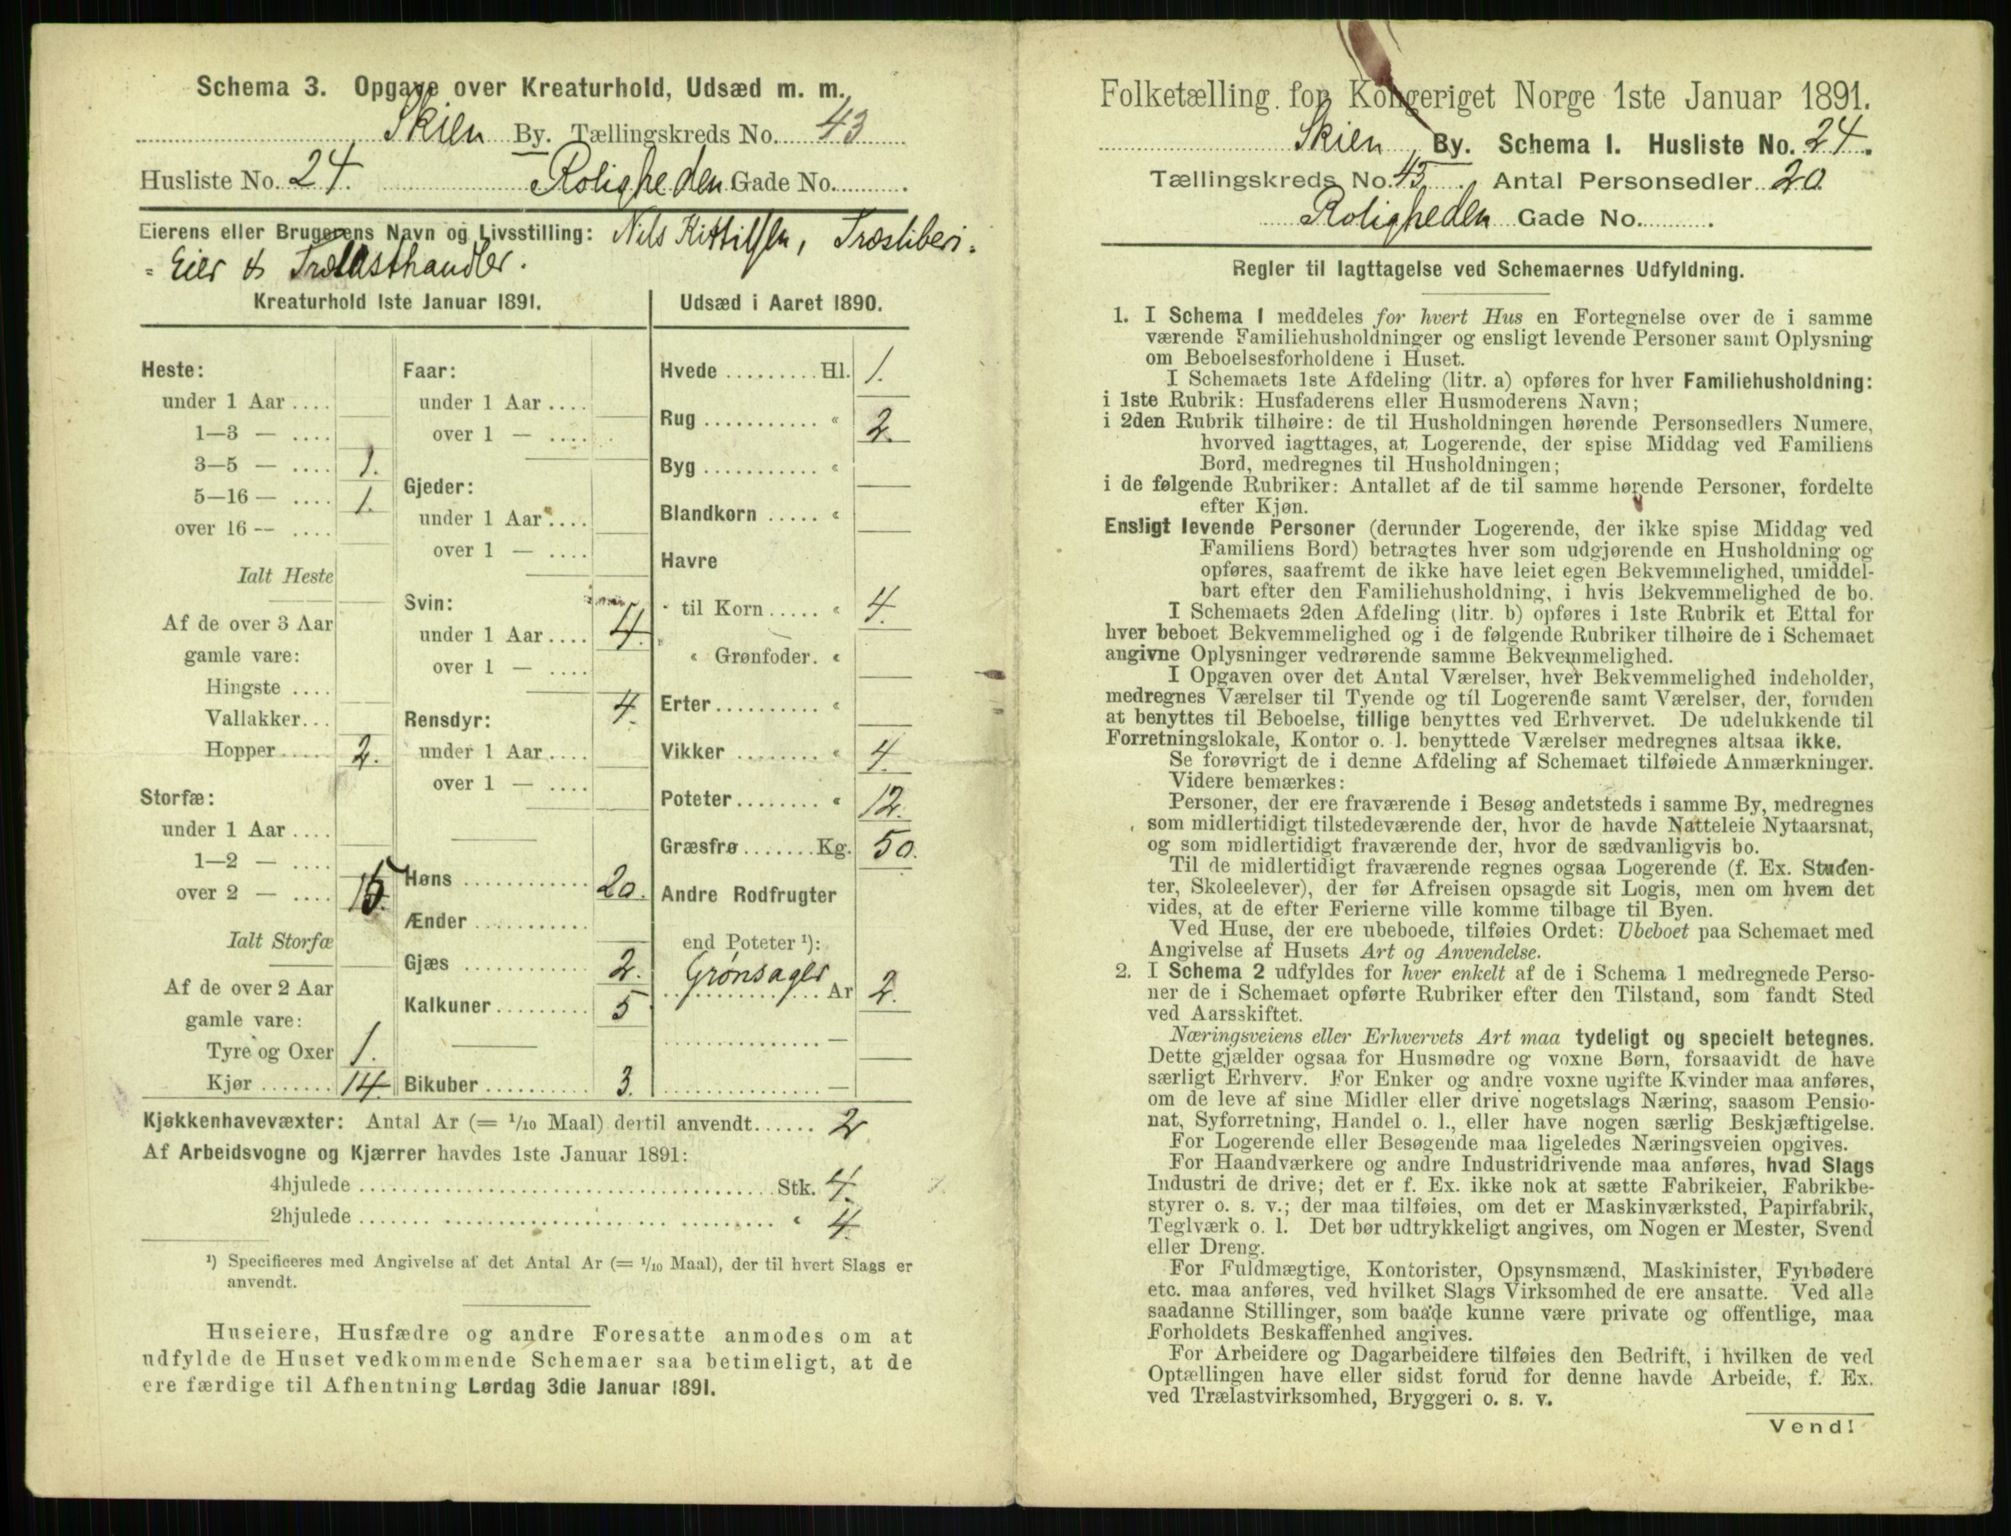 Schema 3. Opgave over Kreaturhold, Udsæd m. m.
Skien By. Tællingskreds No. 43
Husliste No. 24. Roligheden Gade No.
Eierens eller Brugerens Navn og Livsstilling: Nils Kittilsen, Træsliberi-
Eier & Trælasthandler.
Kreaturhold 1ste Januar 1891.
Heste:
under 1 Aar
1—3 —
3—5 — 1.
5—16 — 1.
over 16 —
Ialt Heste
Af de over 3 Aar
gamle vare:
Hingste
Vallakker
Hopper 2.
Storfæ:
under 1 Aar
1—2 —
over 2 — 15.
Ialt Storfæ
Af de over 2 Aar
gamle vare:
Tyre og Oxer 1.
Kjør 14.
Faar:
under 1 Aar
over 1 —
Gjeder:
under 1 Aar
over 1 —
Svin:
under 1 Aar 4.
over 1 —
4.
Rensdyr:
under 1 Aar
over 1 —
Høns 20.
Ænder
Gjæs 2.
Kalkuner 5
Bikuber 3.
Udsæd i Aaret 1890.
Hvede Hl. 1.
Rug " 2.
Byg "
Blandkorn "
Havre
" til Korn " 4.
" Grønfoder. "
Erter "
Vikker " 4.
Poteter " 12.
Græsfrø Kg. 50.
Andre Rodfrugter
end Poteter ¹):
Grønsager Ar 2.
—
—
Kjøkkenhavevæxter: Antal Ar (= 1/10 Maal) dertil anvendt 2
Af Arbeidsvogne og Kjærrer havdes 1ste Januar 1891:
4hjulede Stk. 4.
2hjulede " 4.
¹) Specificeres med Angivelse af det Antal Ar (= 1/10 Maal), der til hvert Slags er
anvendt.
Huseiere, Husfædre og andre Foresatte anmodes om at
udfylde de Huset vedkommende Schemaer saa betimeligt, at de
ere færdige til Afhentning Lørdag 3die Januar 1891.
Folketælling for Kongeriget Norge 1ste Januar 1891.
Skien By. Schema 1. Husliste No. 24.
Tællingskreds No. 43. Antal Personsedler 20
Roligheden Gade No.
Regler til Iagttagelse ved Schemaernes Udfyldning.
1. I Schema 1 meddeles for hvert Hus en Fortegnelse over de i samme
værende Familiehusholdninger og ensligt levende Personer samt Oplysning
om Beboelsesforholdene i Huset.
I Schemaets 1ste Afdeling (litr. a) opføres for hver Familiehusholdning:
i 1ste Rubrik: Husfaderens eller Husmoderens Navn;
i 2den Rubrik tilhøire: de til Husholdningen hørende Personsedlers Numere,
hvorved iagttages, at Logerende, der spise Middag ved Familiens
Bord, medregnes til Husholdningen;
i de følgende Rubriker: Antallet af de til samme hørende Personer, fordelte
efter Kjøn.
Ensligt levende Personer (derunder Logerende, der ikke spise Middag ved
Familiens Bord) betragtes hver som udgjørende en Husholdning og
opføres, saafremt de ikke have leiet egen Bekvemmelighed, umiddel-
bart efter den Familiehusholdning, i hvis Bekvemmelighed de bo.
I Schemaets 2den Afdeling (litr. b) opføres i 1ste Rubrik et Ettal for
hver beboet Bekvemmelighed og i de følgende Rubriker tilhøire de i Schemaet
angivne Oplysninger vedrørende samme Bekvemmelighed.
I Opgaven over det Antal Værelser, hver Bekvemmelighed indeholder,
medregnes Værelser til Tyende og til Logerende samt Værelser, der, foruden
at benyttes til Beboelse, tillige benyttes ved Erhvervet. De udelukkende til
Forretningslokale, Kontor o. l. benyttede Værelser medregnes altsaa ikke.
Se forøvrigt de i denne Afdeling af Schemaet tilføiede Anmærkninger.
Videre bemærkes:
Personer, der ere fraværende i Besøg andetsteds i samme By, medregnes
som midlertidigt tilstedeværende der, hvor de havde Natteleie Nytaarsnat,
og som midlertidigt fraværende der, hvor de sædvanligvis bo.
Til de midlertidigt fraværende regnes ogsaa Logerende (f. Ex. Studen-
ter, Skoleelever), der før Afreisen opsagde sit Logis, men om hvem det
vides, at de efter Ferierne ville komme tilbage til Byen.
Ved Huse, der ere ubeboede, tilføies Ordet: Ubeboet paa Schemaet med
Angivelse af Husets Art og Anvendelse.
2. I Schema 2 udfyldes for hver enkelt af de i Schema 1 medregnede Perso-
ner de i Schemaet opførte Rubriker efter den Tilstand, som fandt Sted
ved Aarsskiftet.
Næringsveiens eller Erhvervets Art maa tydeligt og specielt betegnes.
Dette gjælder ogsaa for Husmødre og voxne Børn, forsaavidt de have
særligt Erhverv. For Enker og andre voxne ugifte Kvinder maa anføres,
om de leve af sine Midler eller drive nogetslags Næring, saasom Pensio-
nat, Syforretning, Handel o. l., eller have nogen særlig Beskjæftigelse.
For Logerende eller Besøgende maa ligeledes Næringsveien opgives.
For Haandværkere og andre Industridrivende maa anføres, hvad Slags
Industri de drive; det er f. Ex. ikke nok at sætte Fabrikeier, Fabrikbe-
styrer o. s. v.; der maa tilføies, om det er Maskinværksted, Papirfabrik,
Teglværk o. l. Det bør udtrykkeligt angives, om Nogen er Mester, Svend
eller Dreng.
For Fuldmægtige, Kontorister, Opsynsmænd, Maskinister, Fyrbødere
etc. maa anføres, ved hvilket Slags Virksomhed de ere ansatte. Ved alle
saadanne Stillinger, som baade kunne være private og offentlige, maa
Forholdets Beskaffenhed angives.
For Arbeidere og Dagarbeidere tilføies den Bedrift, i hvilken de ved
Optællingen have eller sidst forud for denne havde Arbeide, f. Ex.
ved Trælastvirksomhed, Bryggeri o. s. v.
Vend!